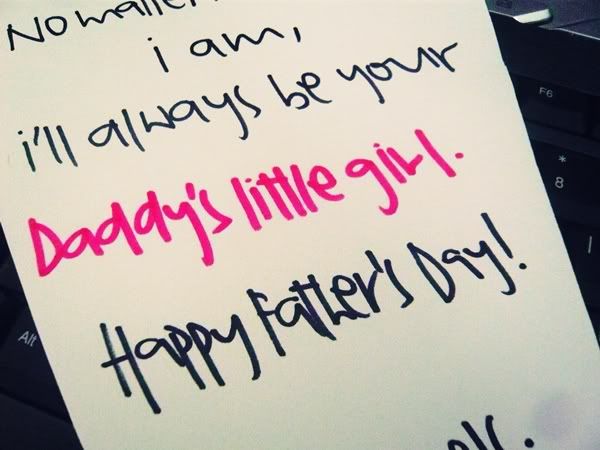 No matter
i am,
i'll always be your
Daddy's little girl.
Happy Father's Day!
F6
*
8
Alt